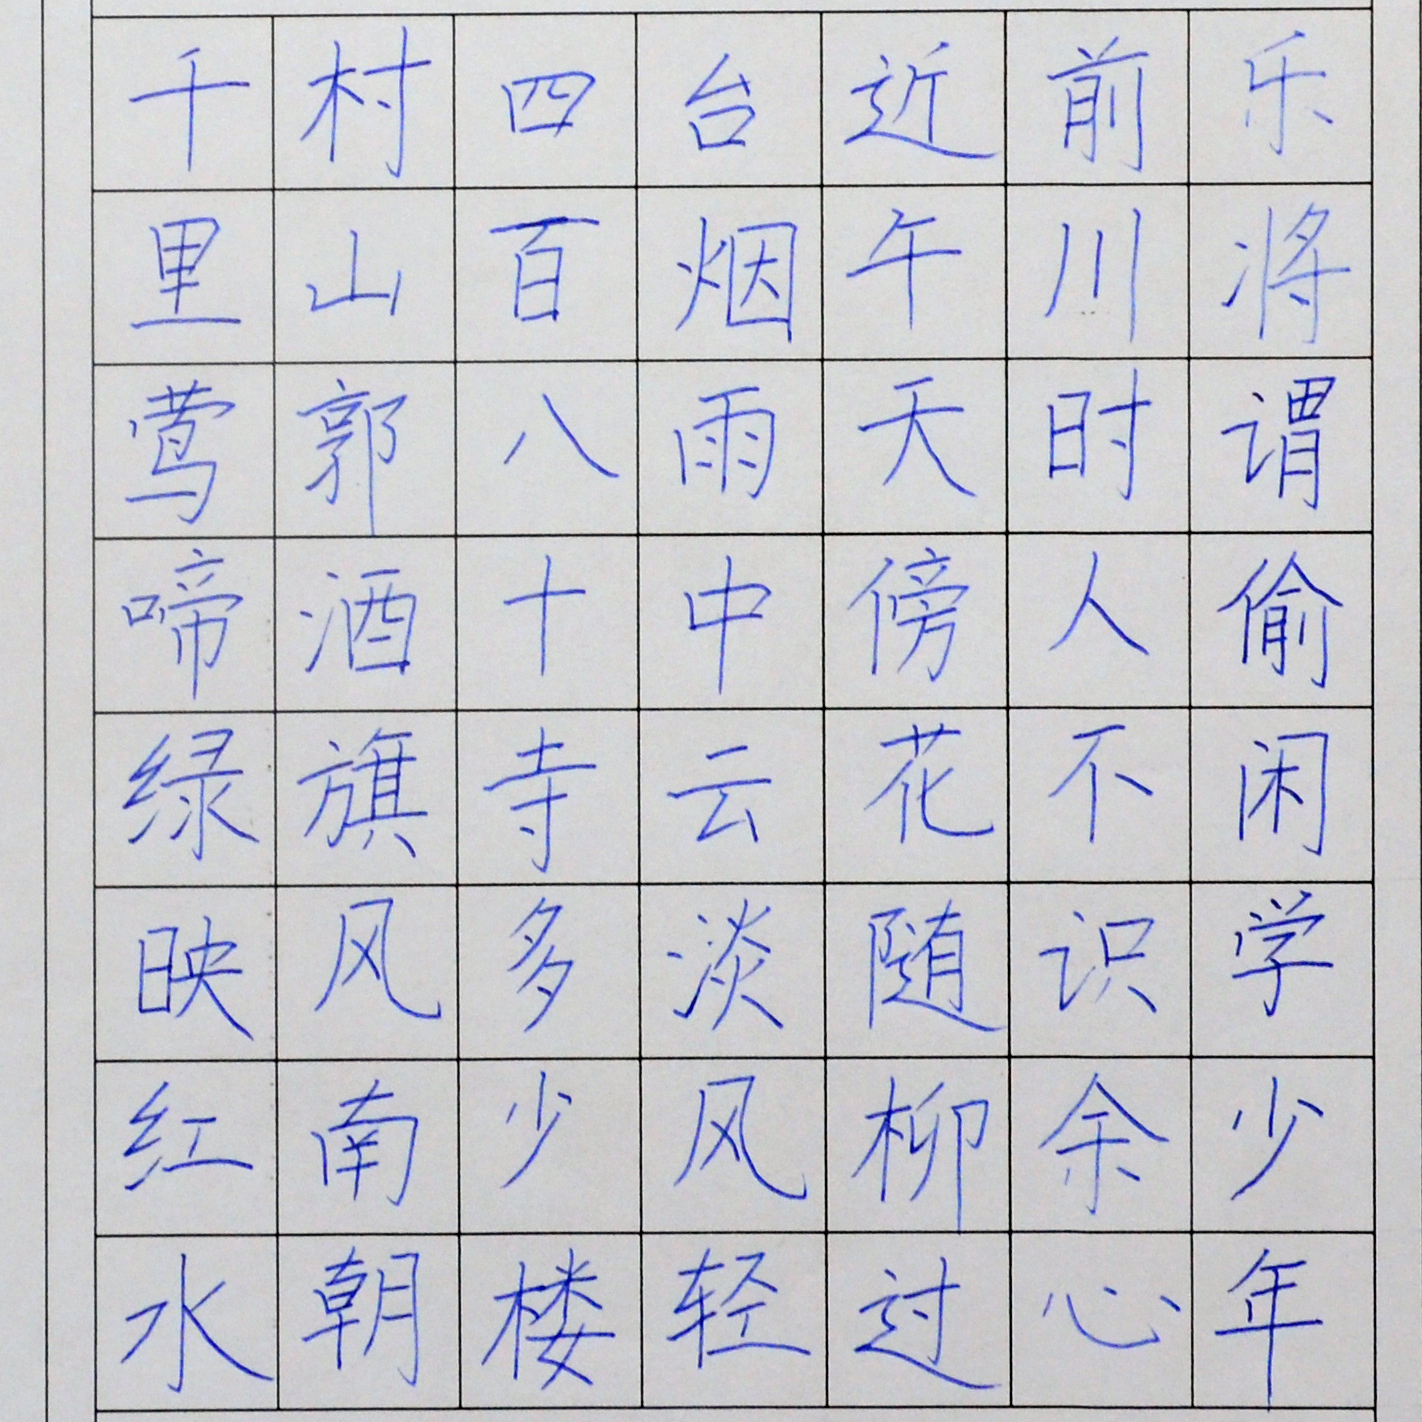 千里莺啼绿映红水
村山郭酒旗风南朝
四百八十寺多少楼
台烟雨中云淡风轻
近午天傍花随柳过
前川时人不识余心
乐将谓偷闲学少年